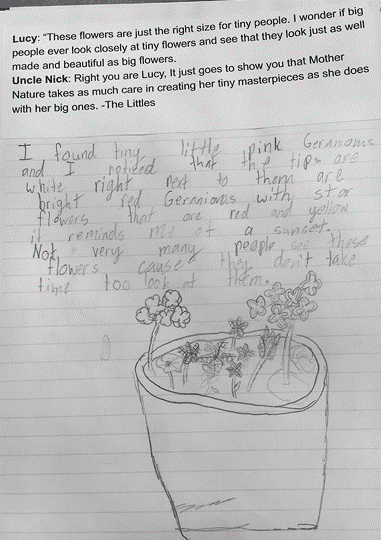 Lucy: "These flowers are just the right size for tiny people. I wonder if big
people ever look closely at tiny flowers and see that they look just as well
made and beautiful as big flowers.
Uncle Nick: Right you are Lucy, It just goes to show you that Mother
Nature takes as much care in creating her tiny masterpieces as she does
with her big ones. -The Littles
I found tiny little pink Geranioms
and I noticed that the tips are
white right next to them are
bright red Geranioms with star
flowers that are red and yellow
it reminds me of a sunset.
Not very many people see these
flowers cause they don't take
time too look at them.